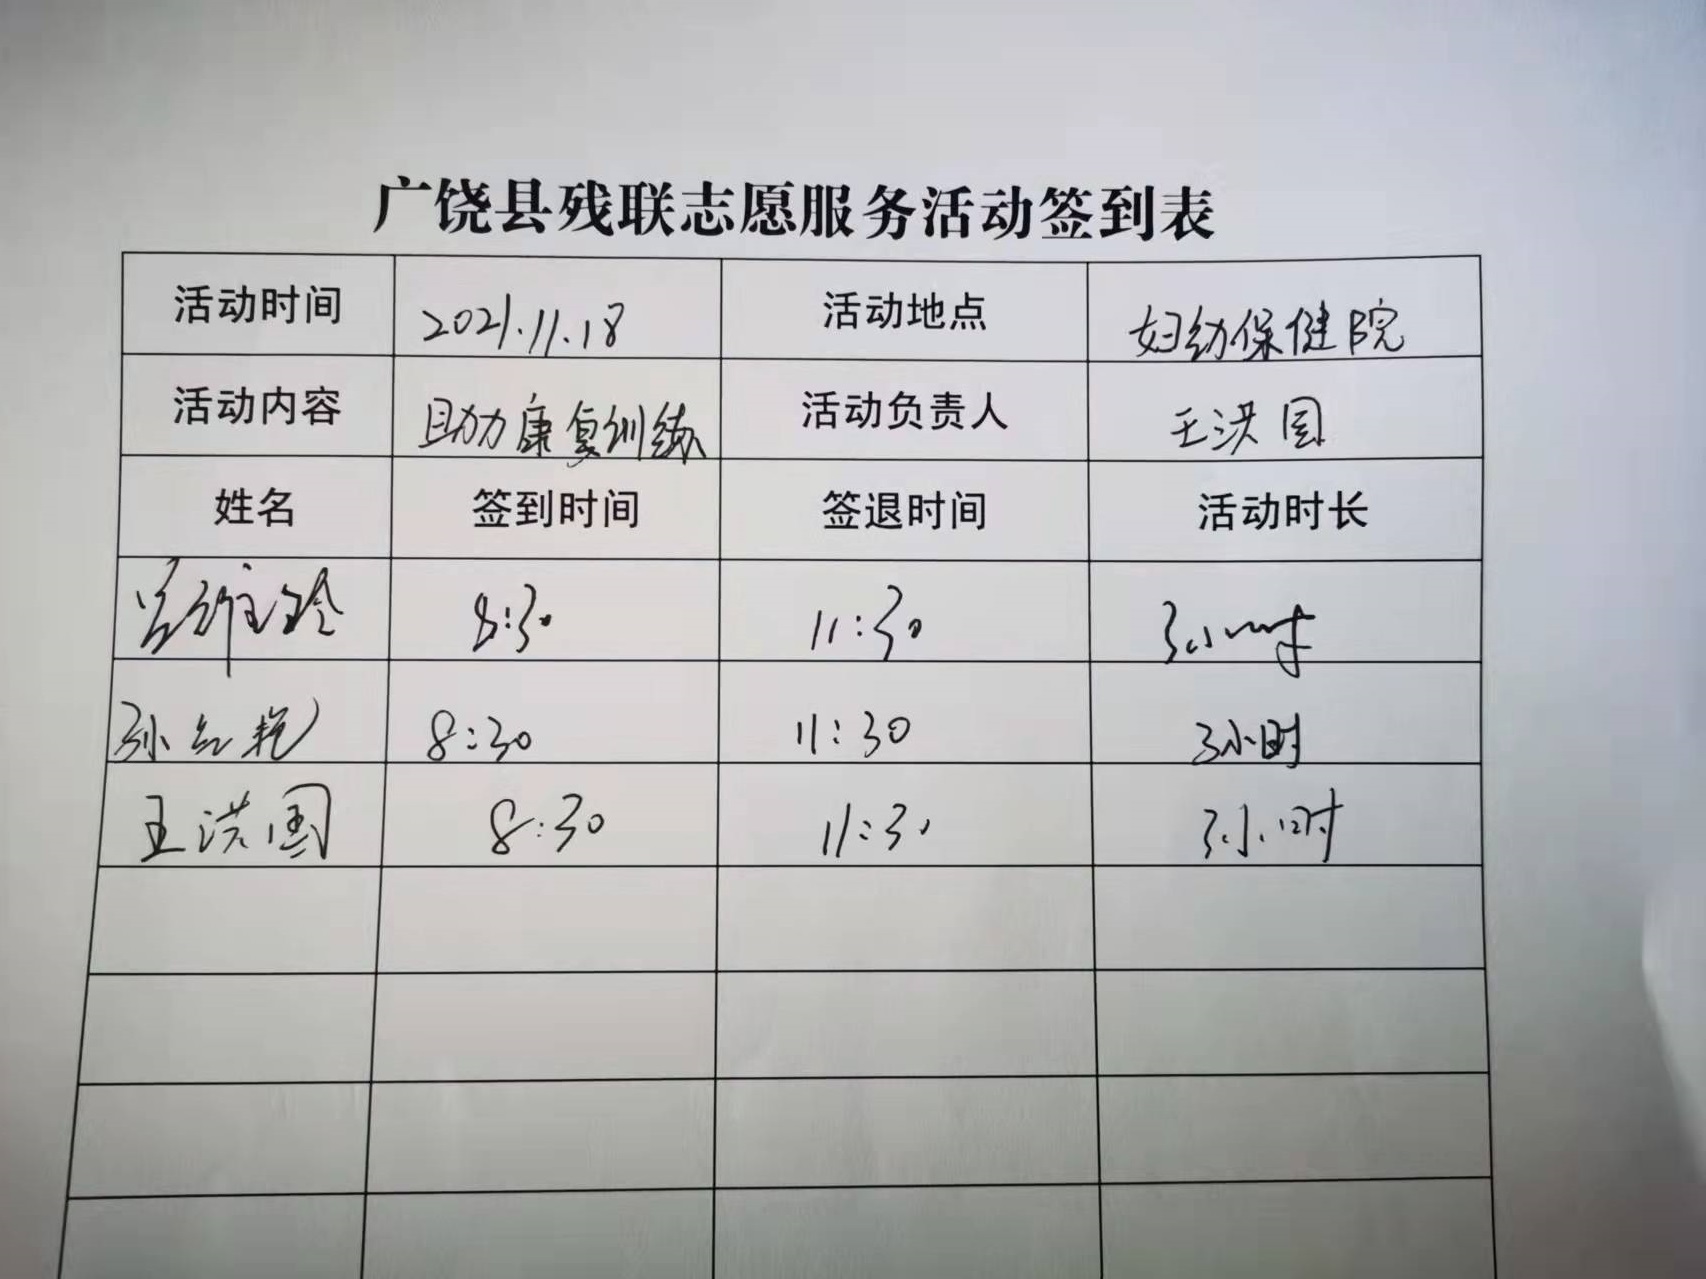 广饶县残联志愿服务活动签到表
活动时间 2021.11.18 活动地点 妇幼保健院
活动内容 助力康复训练 活动负责人 王洪国
姓名 签到时间 签退时间 活动时长
8:30 11:30 3小时
孙红艳 8:30 11:30 3小时
王洪国 8:30 11:30 3小时